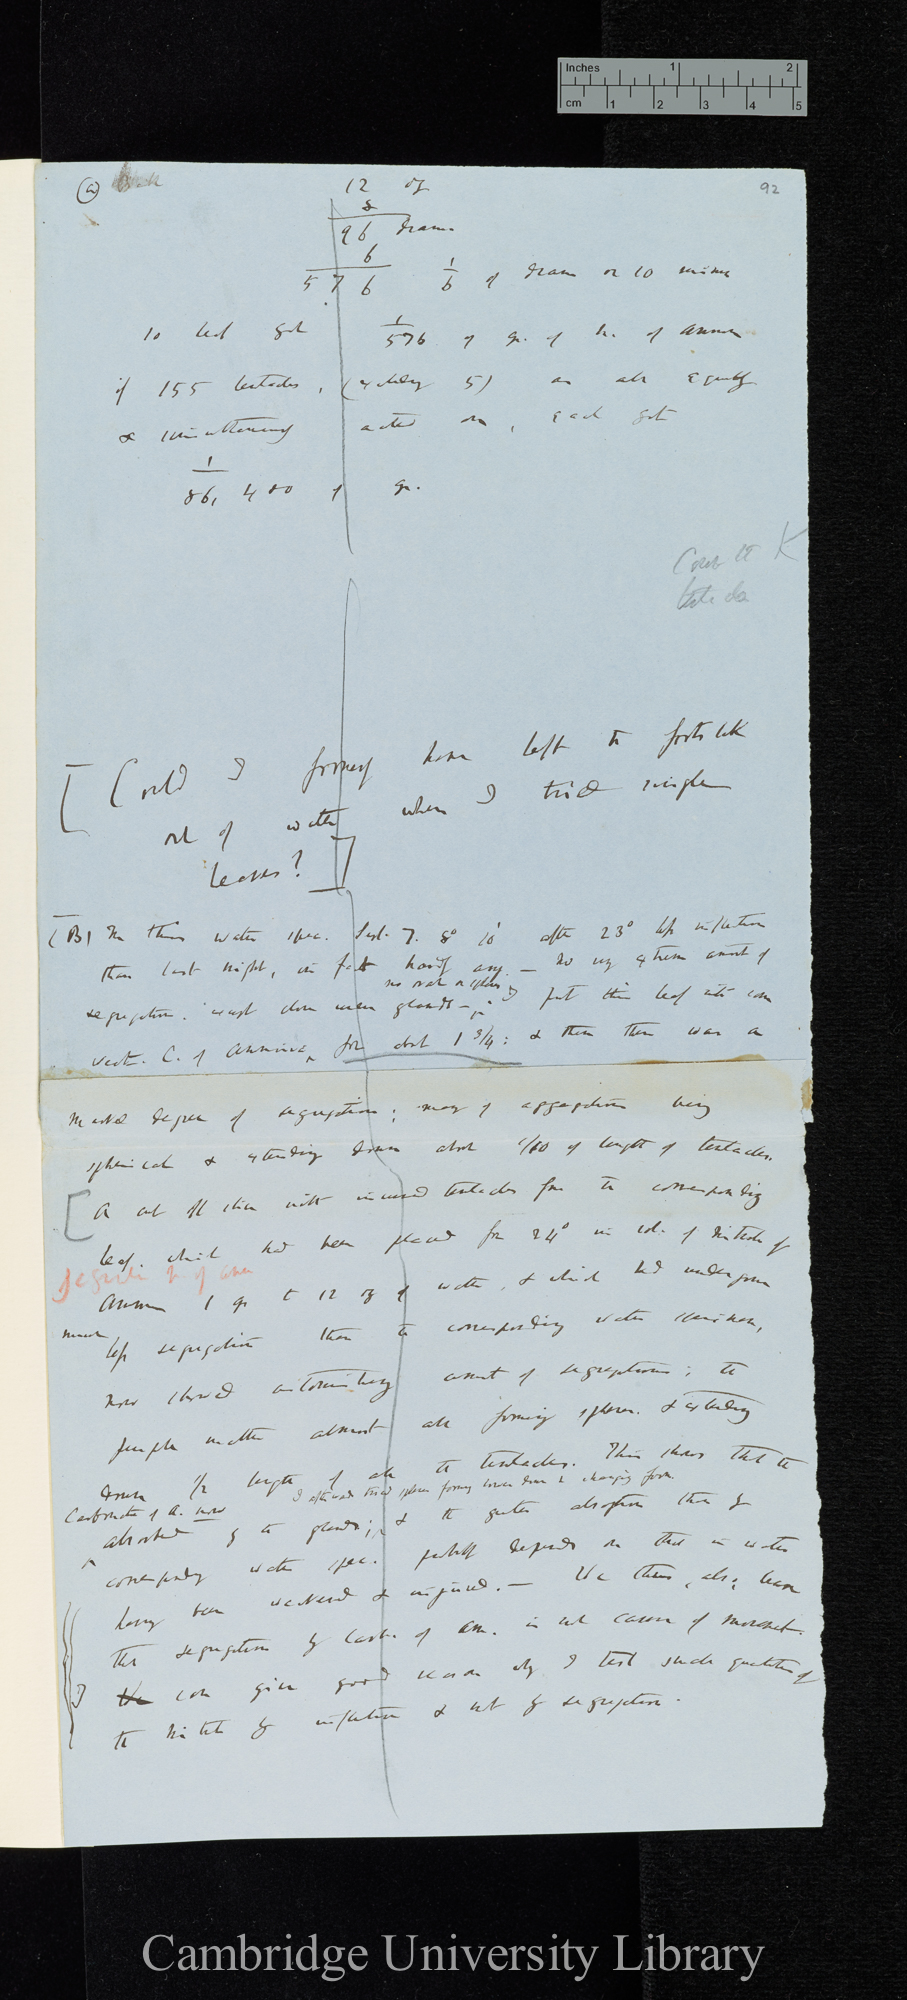 Inches 1 2
cm 1 2 3 4 5
(a)
92
12 oz
8
96 drams
6
576 1/6 of dram or 10 minims
10 leaf got 1/576 of gr. of N. of Ammon
if 155 tentacles, (excluding 5) are all equally
& simultaneously acted on, each got
1/86,400 of gr.
Count the K
tentacles
[Could I formerly have left the footstalk
out of water when I tried single
leaves?]
(B) In this water spec. Sept. 7. 8° 10' after 23° less inflection
than last night, in fact hardly any — no very extreme amount of
segregation. just down near glands — I put this leaf into
C. of Ammonia for about 1 3/4: & then there was a
marked degree of segregation; many of aggregations being
spherical & extending down about 1/80 of length of tentacles.
[A cut off slice with incurved tentacles from the corresponding
leaf, which had been placed for 24° in sol. of Nitrate of
Ammon 1 gr to 12 oz of water, & which had undergone
much
less segregation than the corresponding water specimen,
now showed astonishing amount of segregation; the
purple matter almost all forming spheres & extending
down 1/2 length of all the tentacles. This shows that the
Carbonate of A. now
absorbed by the glands; & the greater absorption than by
corresponding water spec. probably depends on that in water
having been weakened & injured. — We thus, also, learn
that segregation by Carb. of am. is not cause of movement.
We can give good reason why I test such quantities of
the Nitrate by inflection & not by segregation.
Cambridge University Library